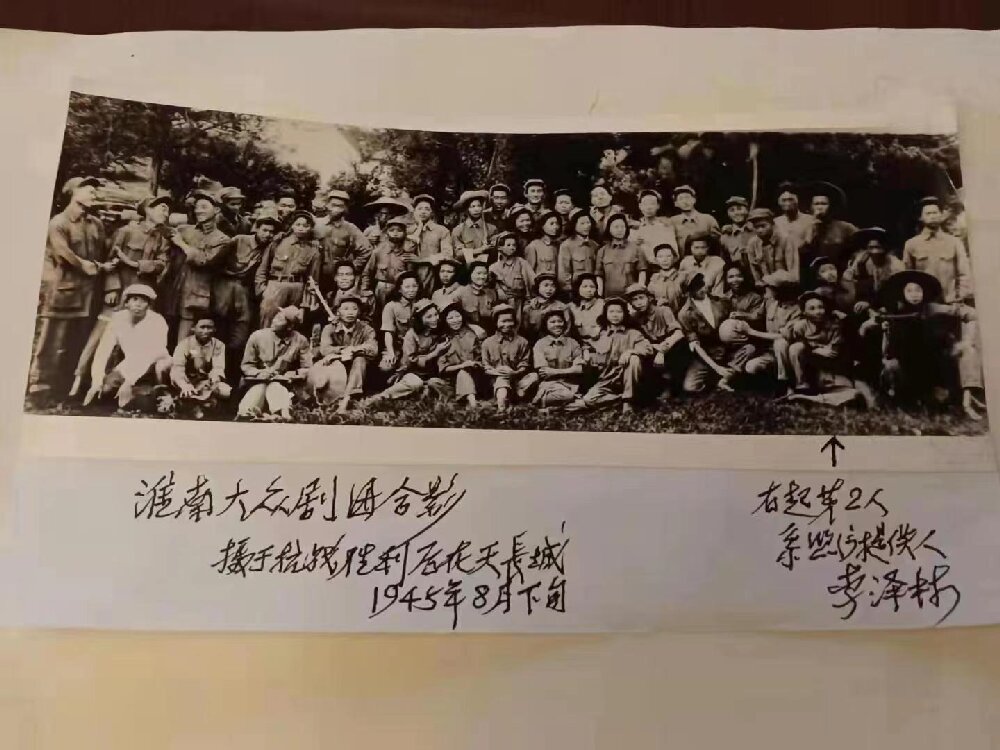 淮南大众剧团合影
摄于抗战胜利后在天長城
1945年8月下旬
右起第2人
系照片提供人
李泽林